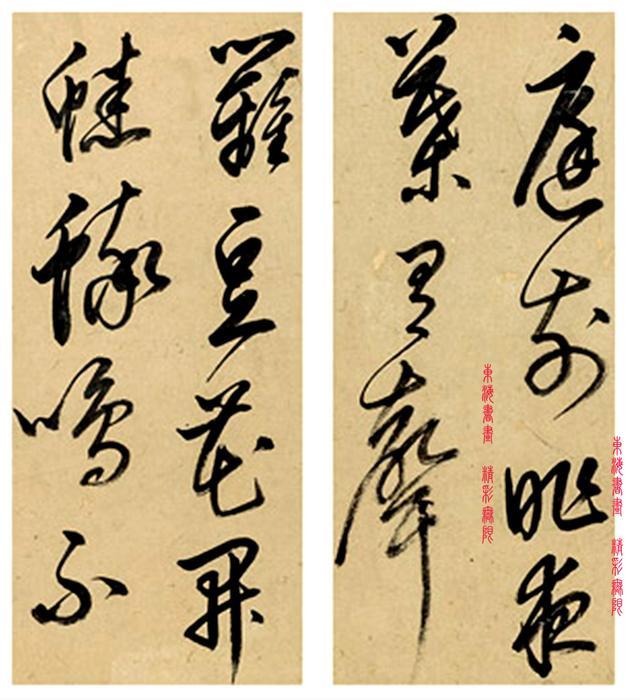 庭前昨夜
葉有聲
籬豆花開
蟋蟀鳴不
東海書畫 精彩無限
東海書畫 精彩無限